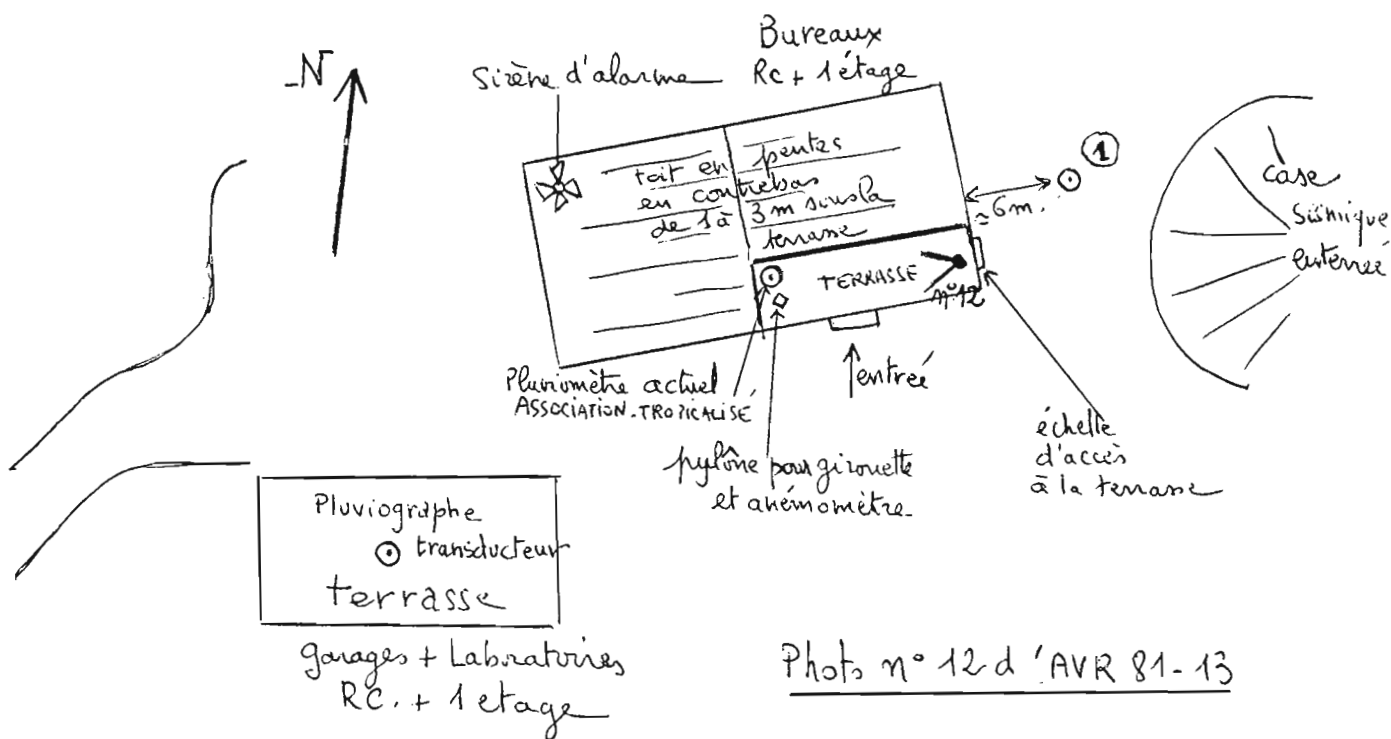 N
Sirène d'alarme
Bureaux
RC + 1 étage
toit en pentes
en contrebas
de 1 à 3 m sous la
terrasse
1
≈ 6 m.
case
sismique
enterrée
TERRASSE
n° 12
Pluviomètre actuel
ASSOCIATION-TROPICALISÉ
entrée
pylône pour girouette
et anémomètre
échelle
d'accès
à la terrasse
Pluviographe
transducteur
terrasse
garages + Laboratoires
RC. + 1 etage
Photo n° 12 d'AVR 81-13